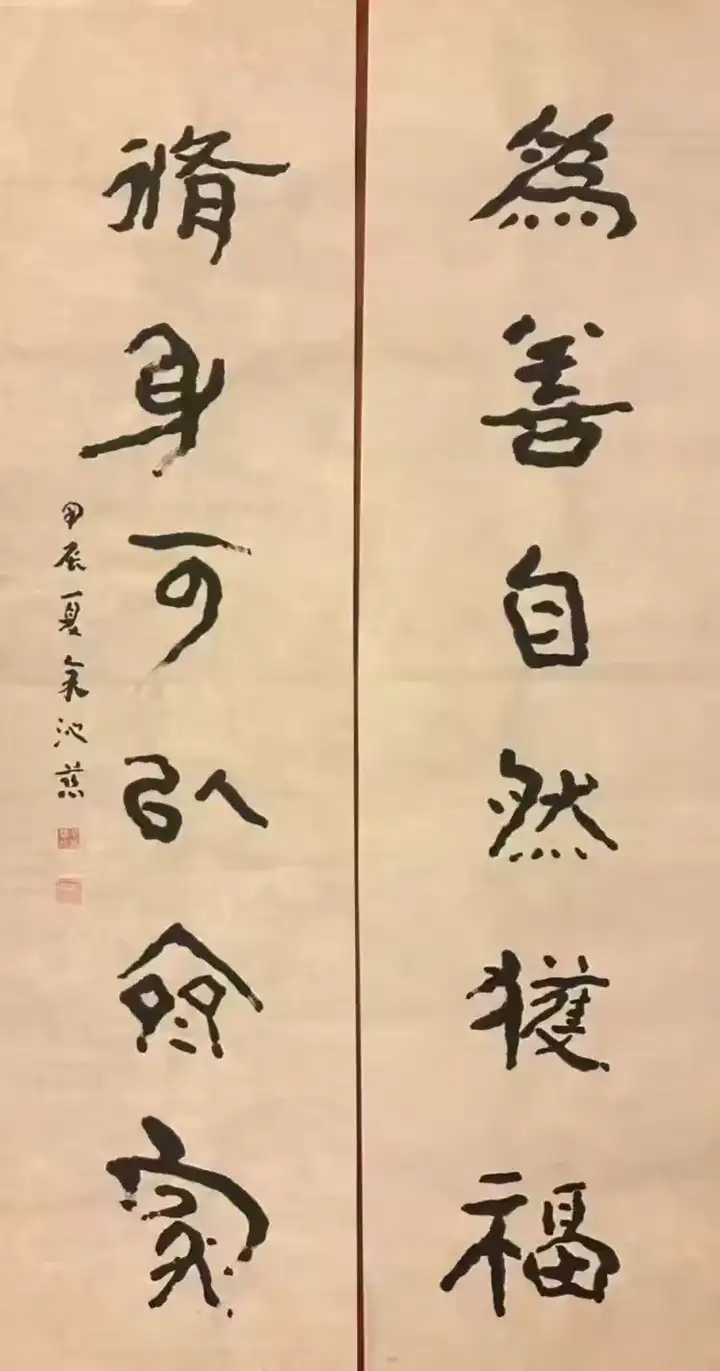 為善自然獲福
脩身可以齊家
甲辰夏 沁